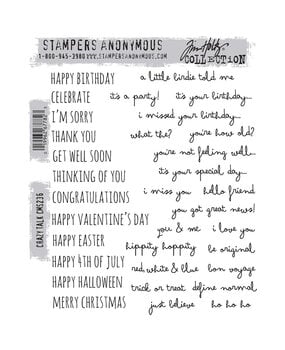 STAMPERS ANONYMOUS
1-800-945-3980 WWW.STAMPERSANONYMOUS.COM
Tim Holtz
COLLECTION
HAPPY BIRTHDAY
CELEBRATE
I'M SORRY
THANK YOU
GET WELL SOON
THINKING OF YOU
CONGRATULATIONS
HAPPY VALENTINE'S DAY
HAPPY EASTER
HAPPY 4TH OF JULY
HAPPY HALLOWEEN
MERRY CHRISTMAS
a little birdie told me
it's a party! it's your birthday
i missed your birthday
what the? you're how old?
you're not feeling well
it's your special day
i miss you hello friend
you got great news!
you & me i love you
hippity hoppity be original
red white & blue bon voyage
trick or treat define normal
just believe ho ho ho
CRAZY TALK CMS236